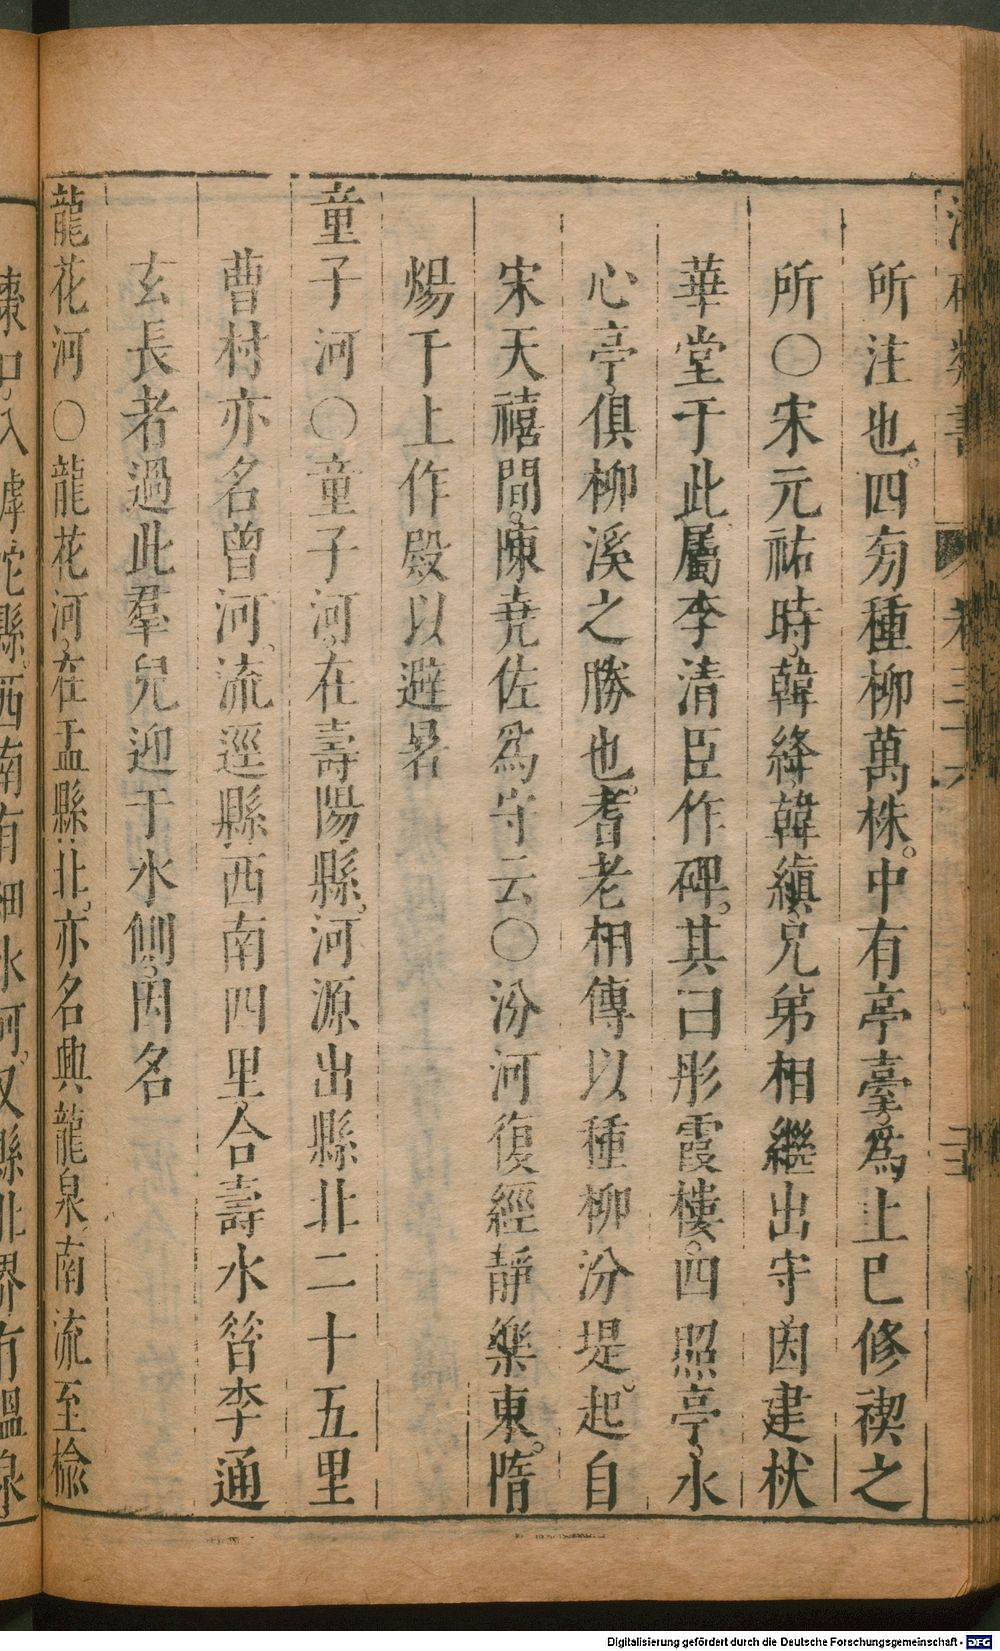 所注也。四旁種柳萬株。中有亭臺爲上巳修禊之
所〇宋元祐時韓絳韓縝兄弟相繼出守因建杕
華堂于此屬李清臣作碑。其曰彤霞樓。四照亭水
心亭俱柳溪之勝也。耆老相傳以種柳汾堤。起自
宋天禧間陳堯佐爲守云〇汾河復經靜樂東。隋
煬于上作殿以避暑
童子河〇童子河在壽陽縣。河源出縣北二十五里
曹村亦名曾河流逕縣西南四里合壽水筤李通
玄長者過此羣兒迎于水側因名
龍花河〇龍花河在盂縣北。亦名興龍泉南流至榆
棗口。入滹沱縣西南有細水河。又縣北界有溫泉
Digitalisierung gefördert durch die Deutsche Forschungsgemeinschaft - DFG